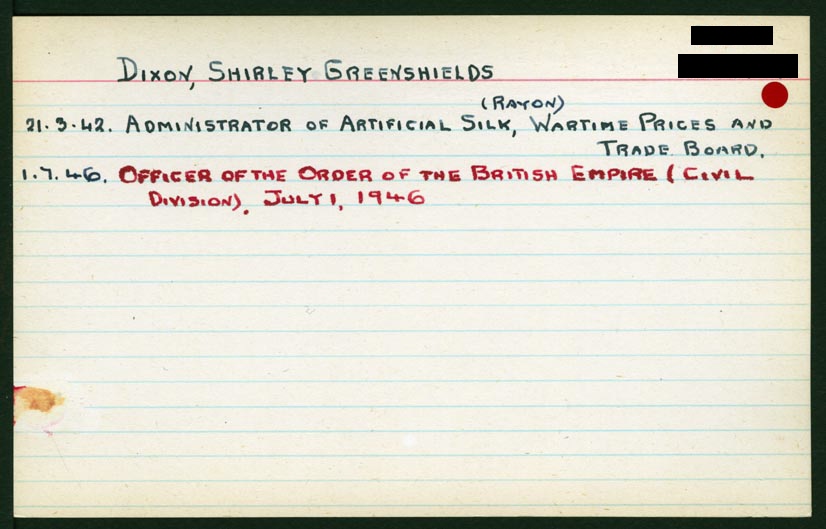 DIXON, SHIRLEY GREENSHIELDS
(RAYON)
21.3.42. ADMINISTRATOR OF ARTIFICIAL SILK, WARTIME PRICES AND
TRADE BOARD.
1.7.46. OFFICER OF THE ORDER OF THE BRITISH EMPIRE (CIVIL
DIVISION), JULY 1, 1946